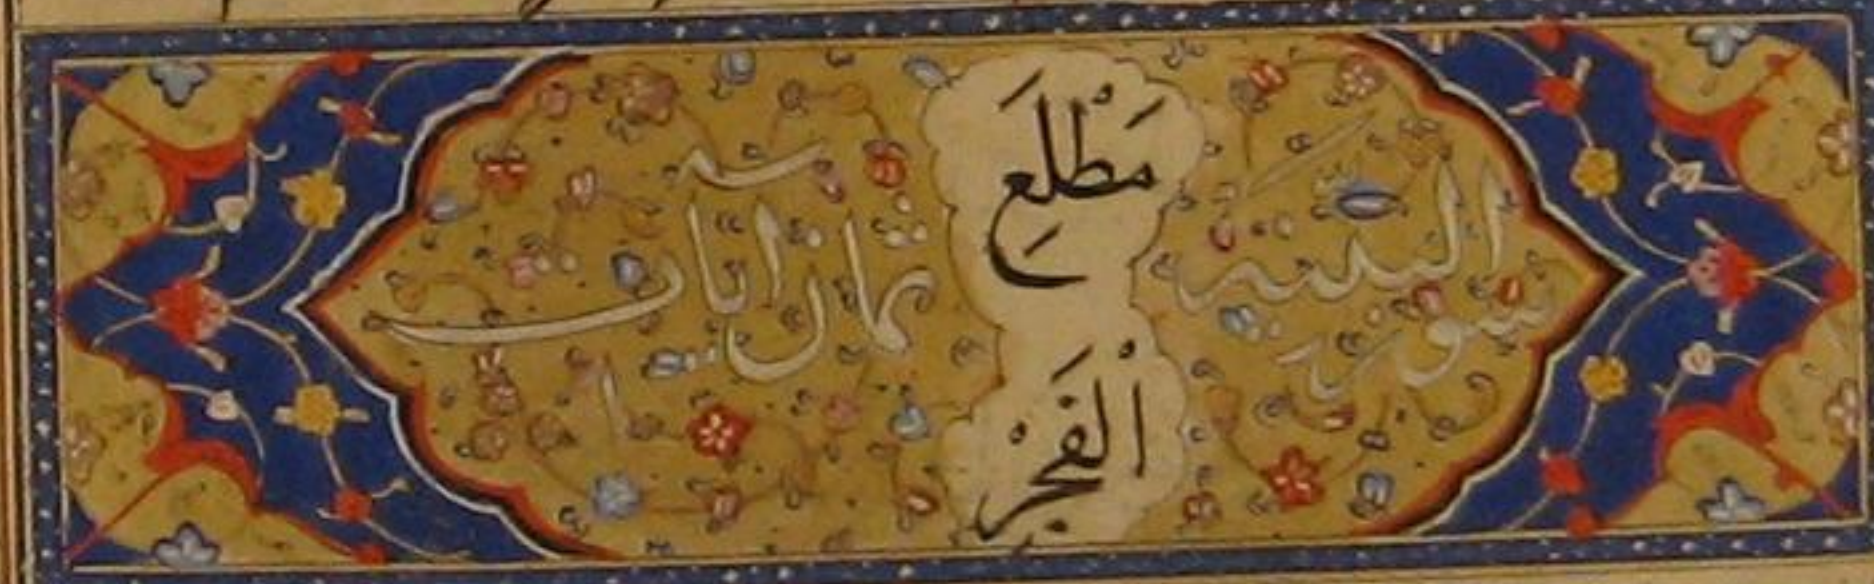 سورة البينة
مَطْلَعِ
ٱلْفَجْرِ
ثمان آيات